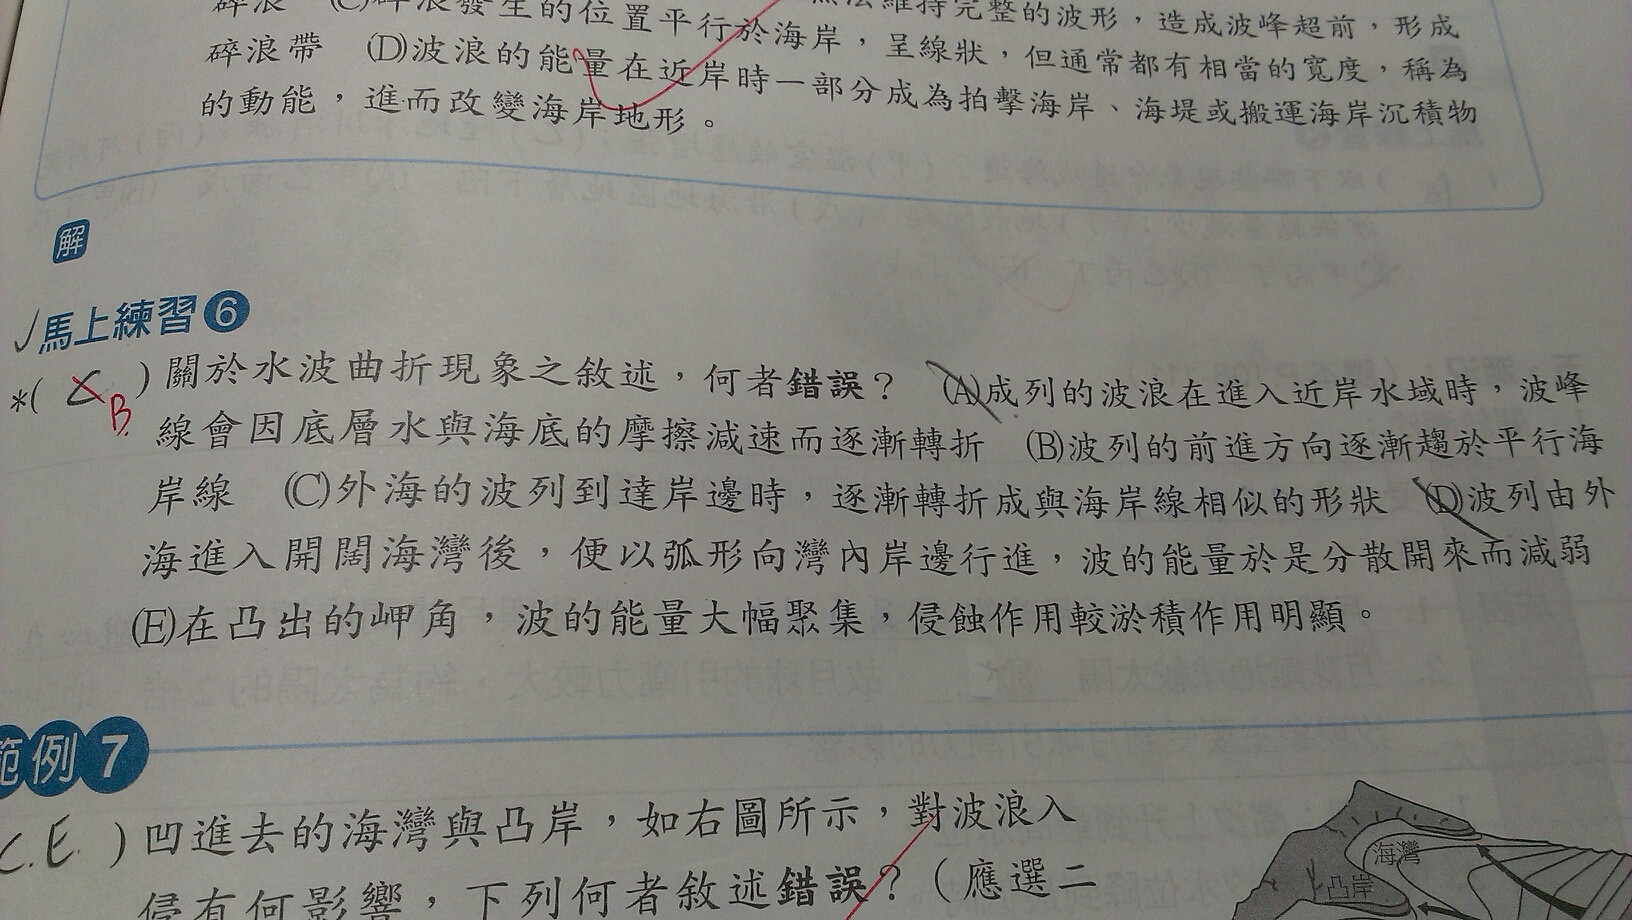 碎浪 (C)碎浪發生的位置平行於海岸，呈線狀，但通常都有相當的寬度，稱為
無法維持完整的波形，造成波峰超前，形成
碎浪帶 (D)波浪的能量在近岸時一部分成為拍擊海岸、海堤或搬運海岸沉積物
的動能，進而改變海岸地形。
解
✓馬上練習6
*( C B )關於水波曲折現象之敘述，何者錯誤？ (A)成列的波浪在進入近岸水域時，波峰
線會因底層水與海底的摩擦減速而逐漸轉折 (B)波列的前進方向逐漸趨於平行海
岸線 (C)外海的波列到達岸邊時，逐漸轉折成與海岸線相似的形狀 (D)波列由外
海進入開闊海灣後，便以弧形向灣內岸邊行進，波的能量於是分散開來而減弱
(E)在凸出的岬角，波的能量大幅聚集，侵蝕作用較淤積作用明顯。
範例7
C.E. )凹進去的海灣與凸岸，如右圖所示，對波浪入
侵有何影響，下列何者敘述錯誤？(應選二
海灣
凸岸